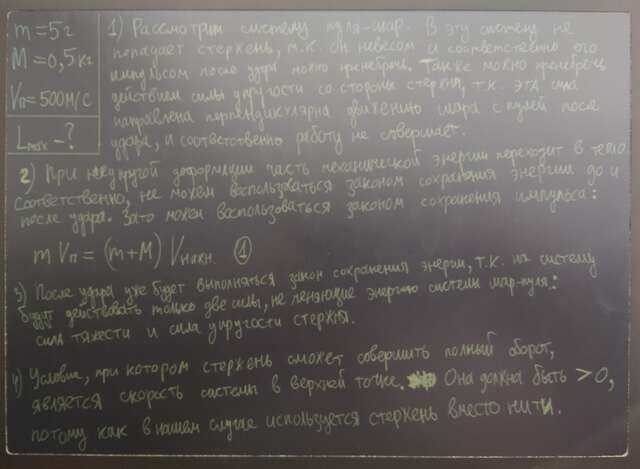 m = 5 г
M = 0,5 кг
Vп = 500 м/с
Lmax - ?
1) Рассмотрим систему пуля-шар. В эту систему не
попадает стержень, т.к. он невесом и соответственно его
импульсом после удара можно пренебречь. Также можно пренебречь
действием силы упругости со стороны стержня, т.к. эта сила
направлена перпендикулярна движению шара с пулей после
удара, и соответственно работу не совершает.
2) При неупругой деформации часть механической энергии переходит в тепло.
Соответственно, не можем воспользоваться законом сохранения энергии до и
после удара. Зато можем воспользоваться законом сохранения импульса:
m Vп = (m+M) Vначн. ①
3) После удара уже будет выполняться закон сохранения энергии, т.к. на систему
будут действовать только две силы, не меняющие энергию системы шар-пуля:
сила тяжести и сила упругости стержня.
4) Условие, при котором стержень сможет совершить полный оборот,
является скорость системы в верхней точке. Она должна быть > 0,
потому как в нашем случае используется стержень вместо нити.